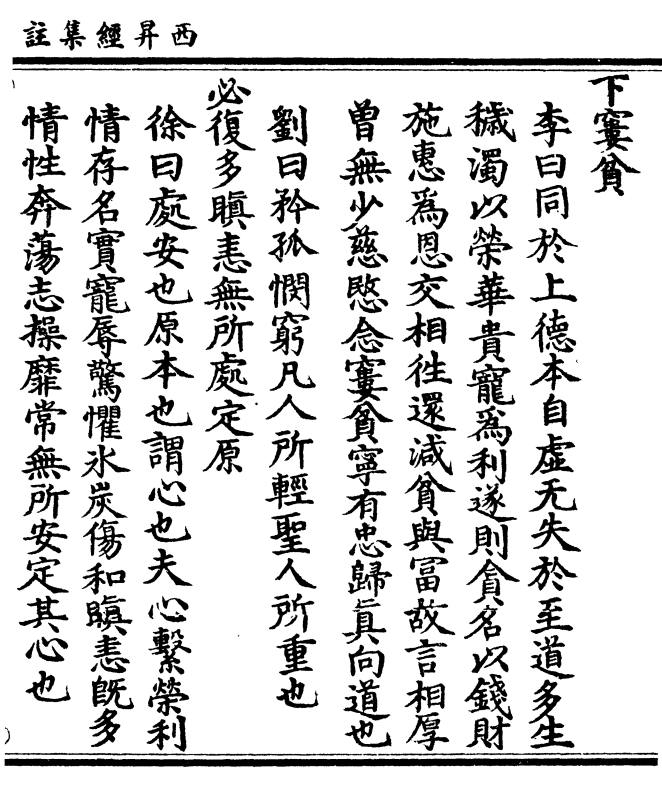 西昇經集註
下窶貧
李曰同於上德本自虛无失於至道多生
穢濁以榮華貴寵爲利遂則貪名以錢財
施惠爲恩交相徃還減貧與冨故言相厚
曽無少慈愍念窶貧寧有忠歸真向道也
劉曰矜孤憫窮凡人所輕聖人所重也
必復多瞋恚無所處定原
徐曰處安也原本也謂心也夫心繫榮利
情存名實寵辱驚懼氷炭傷和瞋恚旣多
情性奔蕩志操靡常無所安定其心也